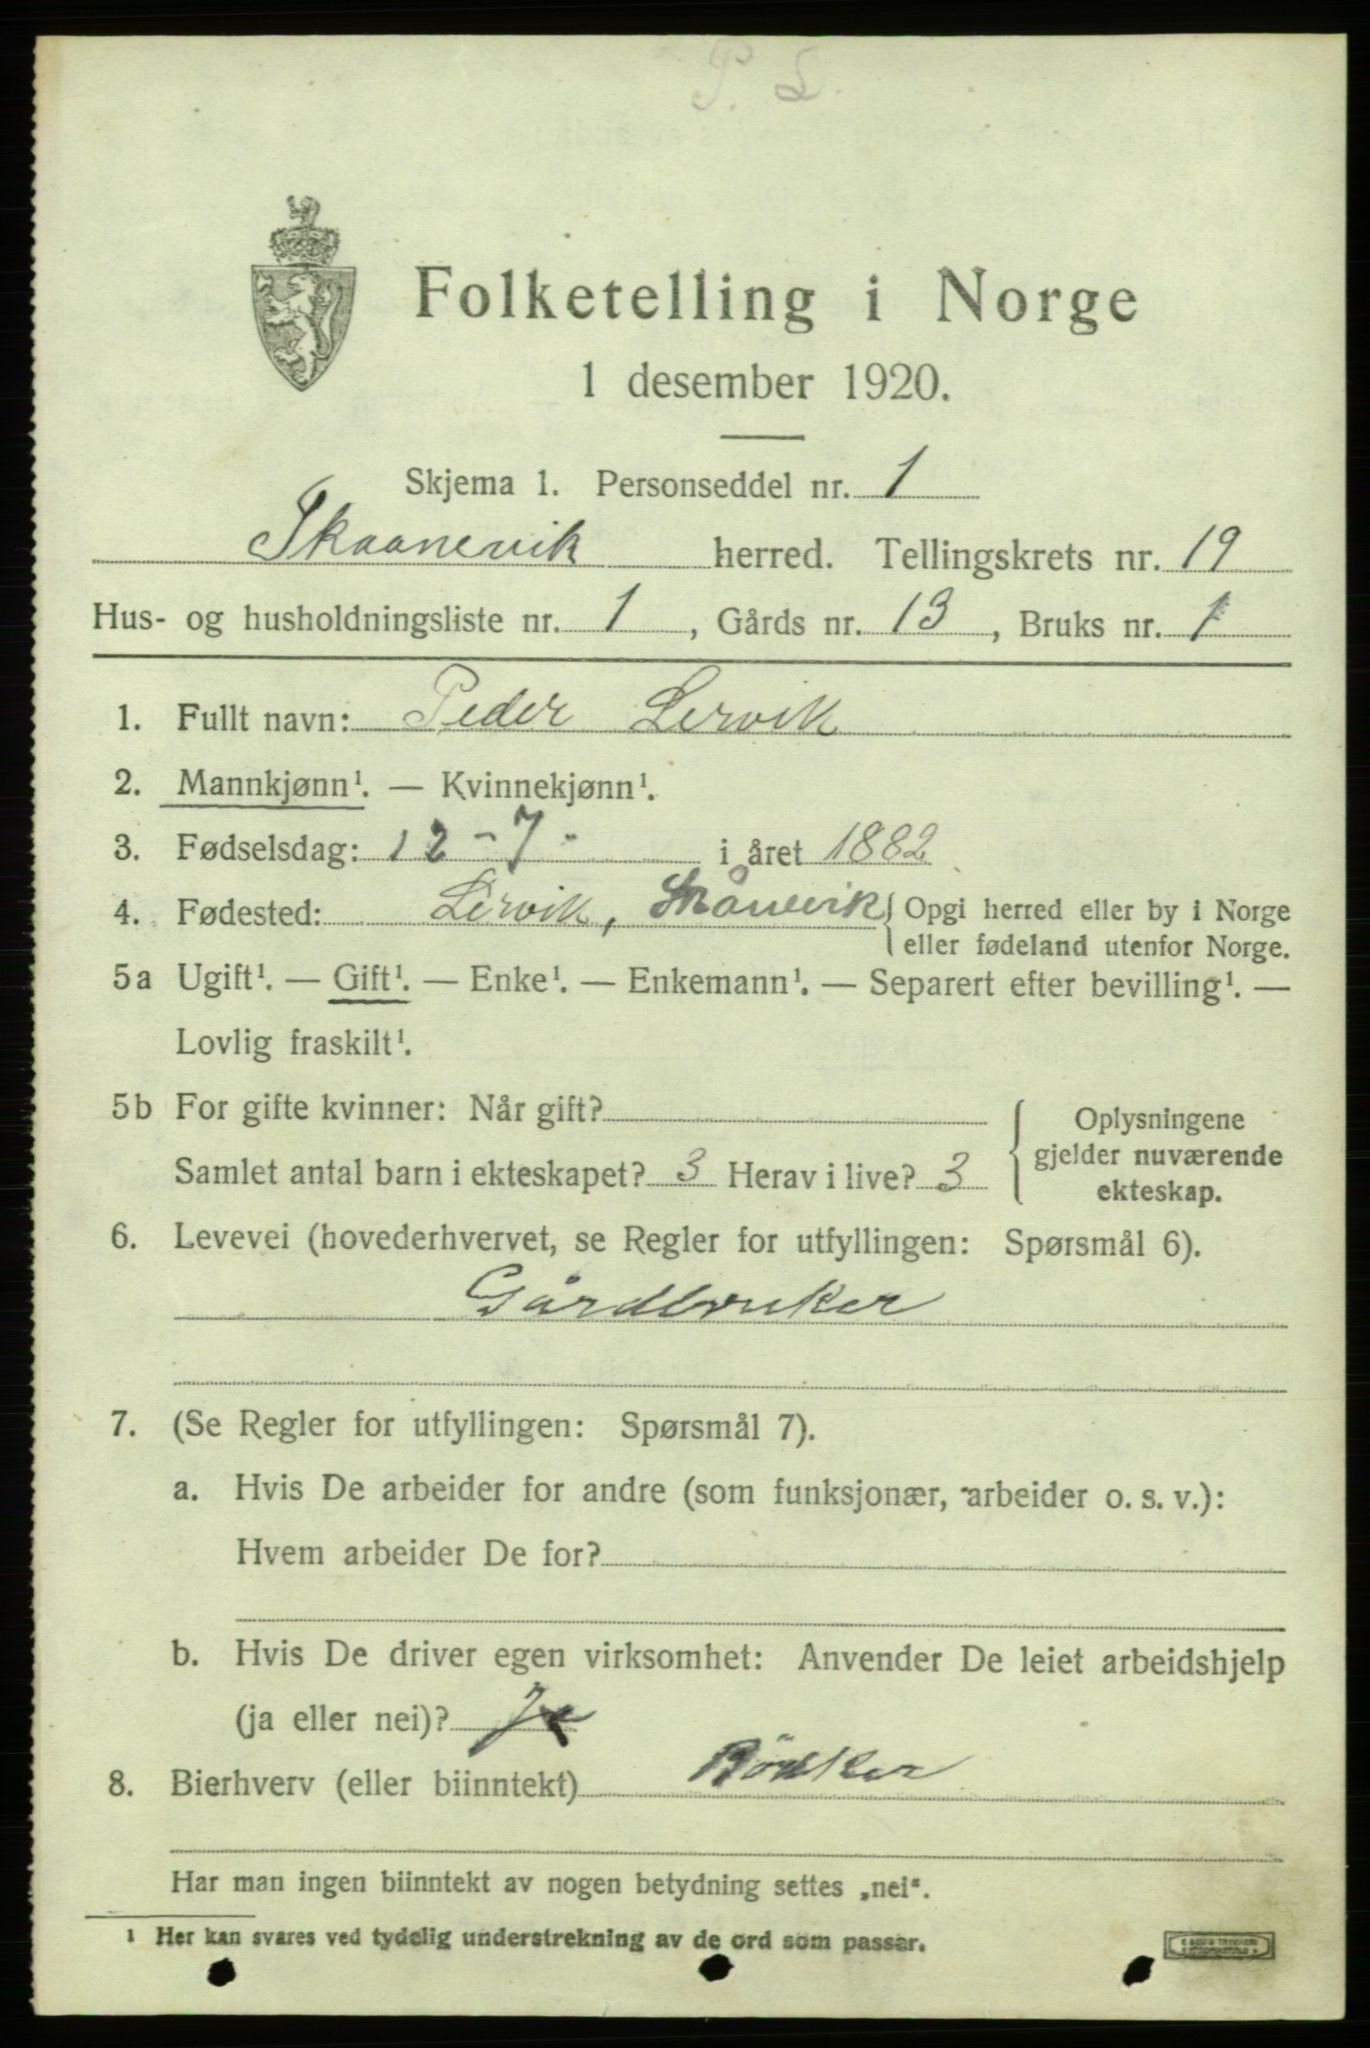 P. L.
Folketelling i Norge
1 desember 1920.
Skjema 1. Personseddel nr. 1
Skaanevik herred. Tellingskrets nr. 19
Hus- og husholdningsliste nr. 1, Gårds nr. 13, Bruks nr. 1
1. Fullt navn: Peder Lervik
2. Mannkjønn¹. — Kvinnekjønn¹.
3. Fødselsdag: 12 - 7 - i året 1882
4. Fødested: Lervik, Skånevik { Opgi herred eller by i Norge
eller fødeland utenfor Norge.
5a Ugift¹. — Gift¹. — Enke¹. — Enkemann¹. — Separert efter bevilling¹. —
Lovlig fraskilt¹.
5b For gifte kvinner: Når gift?
Samlet antal barn i ekteskapet? 3 Herav i live? 3
Oplysningene
gjelder nuværende
ekteskap.
6. Levevei (hovederhvervet, se Regler for utfyllingen: Spørsmål 6).
Gårdbruker
7. (Se Regler for utfyllingen: Spørsmål 7).
a. Hvis De arbeider for andre (som funksjonær, arbeider o. s. v.):
Hvem arbeider De for?
b. Hvis De driver egen virksomhet: Anvender De leiet arbeidshjelp
(ja eller nei)? Ja
8. Bierhverv (eller biinntekt) Bödker
Har man ingen biinntekt av nogen betydning settes „nei“.
¹ Her kan svares ved tydelig understrekning av de ord som passer.